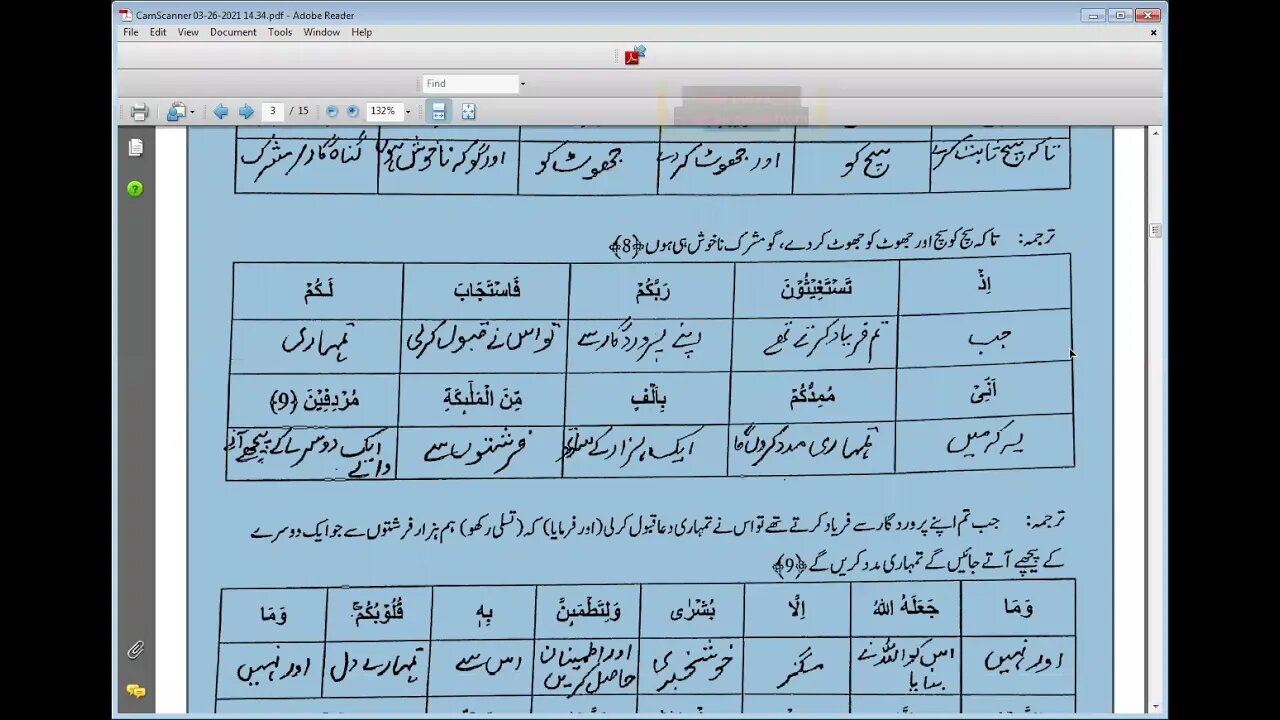 CamScanner 03-26-2021 14.34.pdf - Adobe Reader
File Edit View Document Tools Window Help
Find
3 / 15 132%
تاکہ سچ ثابت کرے سچ کو اور جھوٹا کردے جھوٹ کو اور گو کہ ناخوش ہوں گناہ گار/مشرک
ترجمہ: تاکہ سچ کو سچ اور جھوٹ کو جھوٹ کر دے، گو مشرک ناخوش ہی ہوں ﴿8﴾
اِذْ تَسْتَغِيْثُوْنَ رَبَّكُمْ فَاسْتَجَابَ لَكُمْ
جب تم فریاد کرتے تھے اپنے پروردگار سے تو اس نے قبول کرلی تمہاری
اَنِّىْ مُمِدُّكُمْ بِاَلْفٍ مِّنَ الْمَلٰٓٮِٕكَةِ مُرْدِفِيْنَ ﴿9﴾
یہ کہ میں تمہاری مدد کروں گا ایک ہزار کے ساتھ فرشتوں سے ایک دوسرے کے پیچھے آنے
والے
ترجمہ: جب تم اپنے پروردگار سے فریاد کرتے تھے تو اس نے تمہاری دعا قبول کرلی (اور فرمایا) کہ (تسلی رکھو) ہم ہزار فرشتوں سے جو ایک دوسرے
کے پیچھے آتے جائیں گے تمہاری مدد کریں گے ﴿9﴾
وَمَا جَعَلَهُ اللّٰهُ اِلَّا بُشْرٰى وَلِتَطْمَٮِٕنَّ بِهٖ قُلُوْبُكُمْ ۚ وَمَا
اور نہیں اس کو اللہ نے مگر خوشخبری اور اطمینان اس سے تمہارے دل اور نہیں
بنایا حاصل کریں